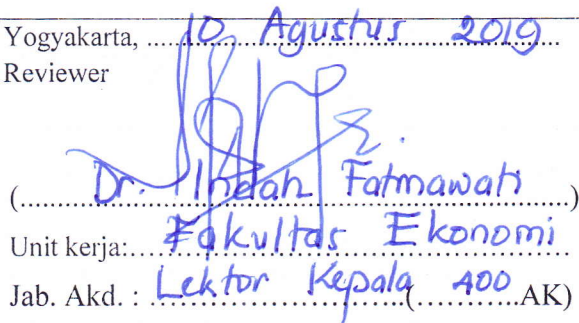 Yogyakarta, ....10....Agustus....2019....
Reviewer
(....Dr. Indah Fatmawati....)
Unit kerja:....Fakultas Ekonomi....
Jab. Akd. : ....Lektor Kepala....(....400....AK)